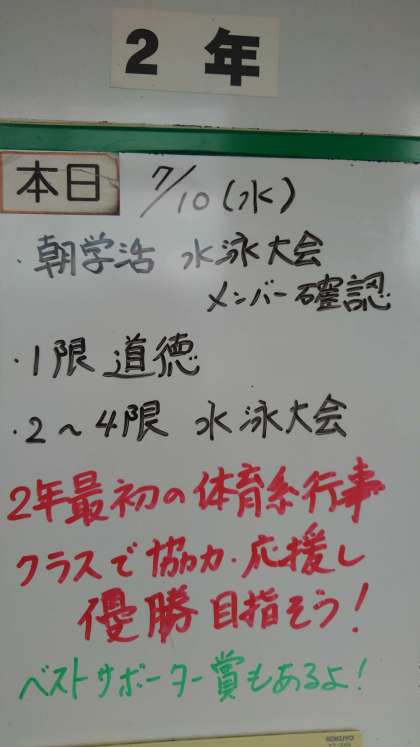 2 年
本日 7/10(水)
・朝学活 水泳大会
メンバー確認
・1限 道徳
・2〜4限 水泳大会
2年最初の体育系行事
クラスで協力・応援し
優勝目指そう!
ベストサポーター賞もあるよ!
KOKUYO